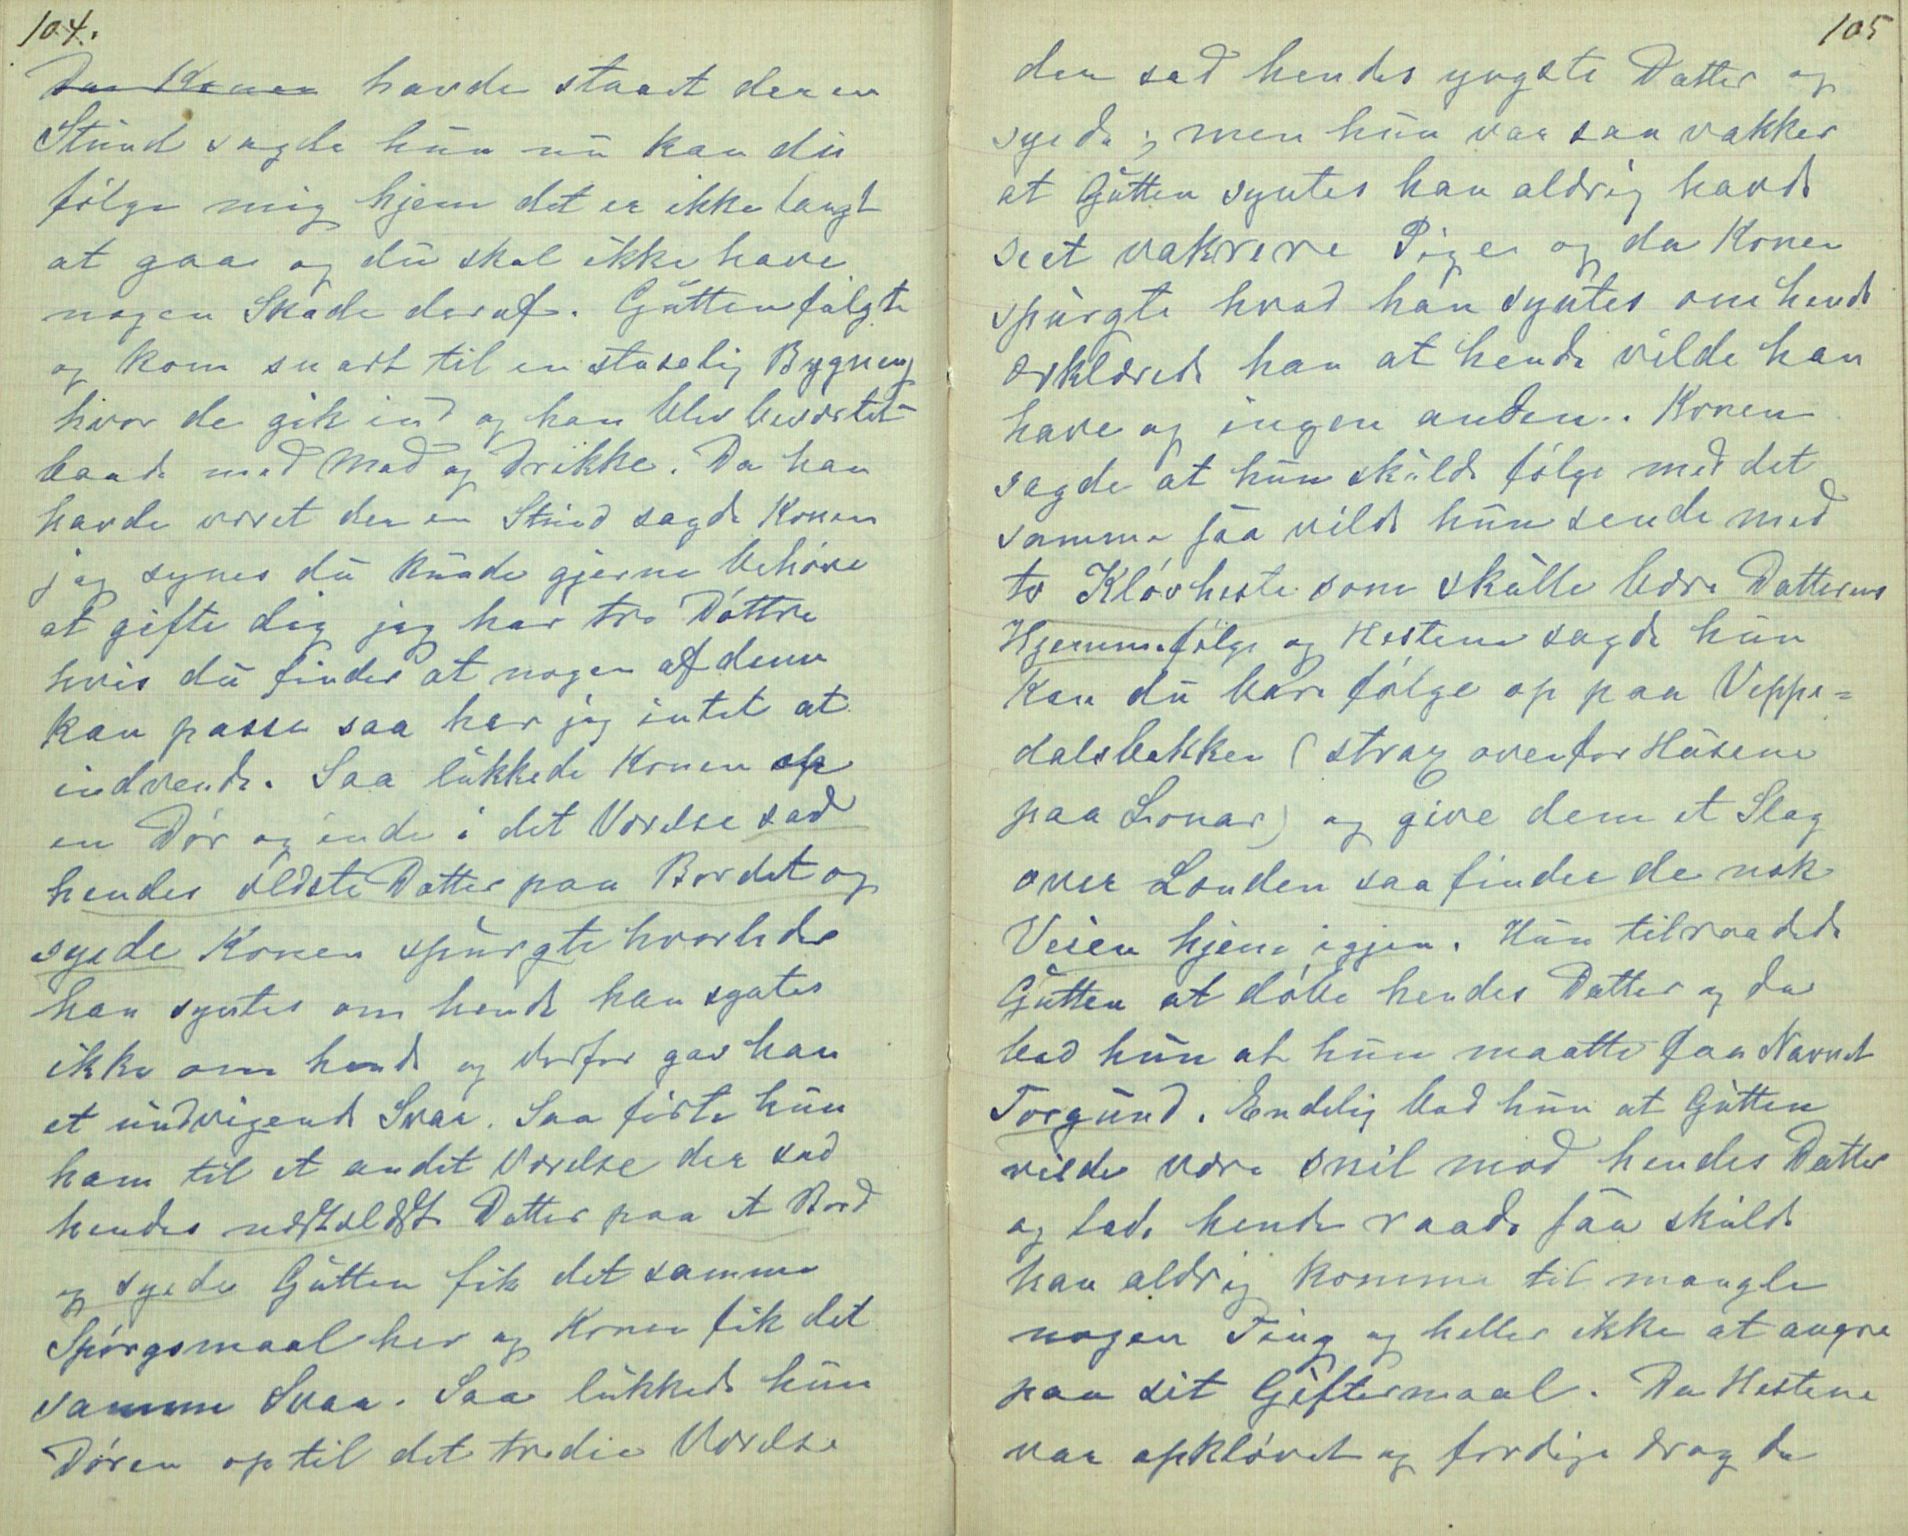 104.
Da Konen havde staaet der en
Stund sagde hun nu kan du
følge mig hjem det er ikke langt
at gaa og du skal ikke have
nogen Skade deraf. Gutten fulgte
og kom snart til en staselig Bygning
hvor de gik ind og han blev beværtet
baade med Mad og Drikke. Da han
havde været der en Stund sagde Konen
jeg synes du kunde gjerne behøve
at gifte dig jeg har tre Døttre
hvis du finder at nogen af dem
kan passe saa har jeg intet at
indvende. Saa lukkede Konen op
en Dør og inde i det Værelse sad
hendes ældste Datter paa Bordet og
syede Konen spurgte hvorledes
han syntes om hende han syntes
ikke om hende og derfor gav han
et undvigende Svar. Saa førte hun
ham til et andet Værelse der sad
hendes næstældste Datter paa et Bord
og syede Gutten fik det samme
Spørgsmaal her og Konen fik det
samme Svar. Saa lukkede hun
Døren op til det tredie Værelse
105
der sad hendes yngste Datter og
syede; men hun var saa vakker
at Gutten syntes han aldrig havde
seet vakrere Piger og da Konen
spurgte hvad han syntes om hende
erklærede han at hende vilde han
have og ingen anden. Konen
sagde at hun skulde følge med det
samme saa vilde hun sende med
to Kløvheste som skulle bære Datterens
Hjemmefølge og Hestene sagde hun
kan du bare følge op paa Veppe=
dalsbakken (strax ovenfor Husene
paa Lonar) og give dem et Slag
over Lenden saa finder de nok
Veien hjem igjen. Hun tilraadede
Gutten at døbe hendes Datter og da
bad hun at hun maatte faa Navnet
Torgund. Endelig bad hun at Gutten
vilde være snil mod hendes Datter
og lade hende raade saa skulde
han aldrig komme til mangle
nogen Ting og heller ikke at angre
paa sit Giftermaal. Da Hestene
var opkløvet og færdige drog de